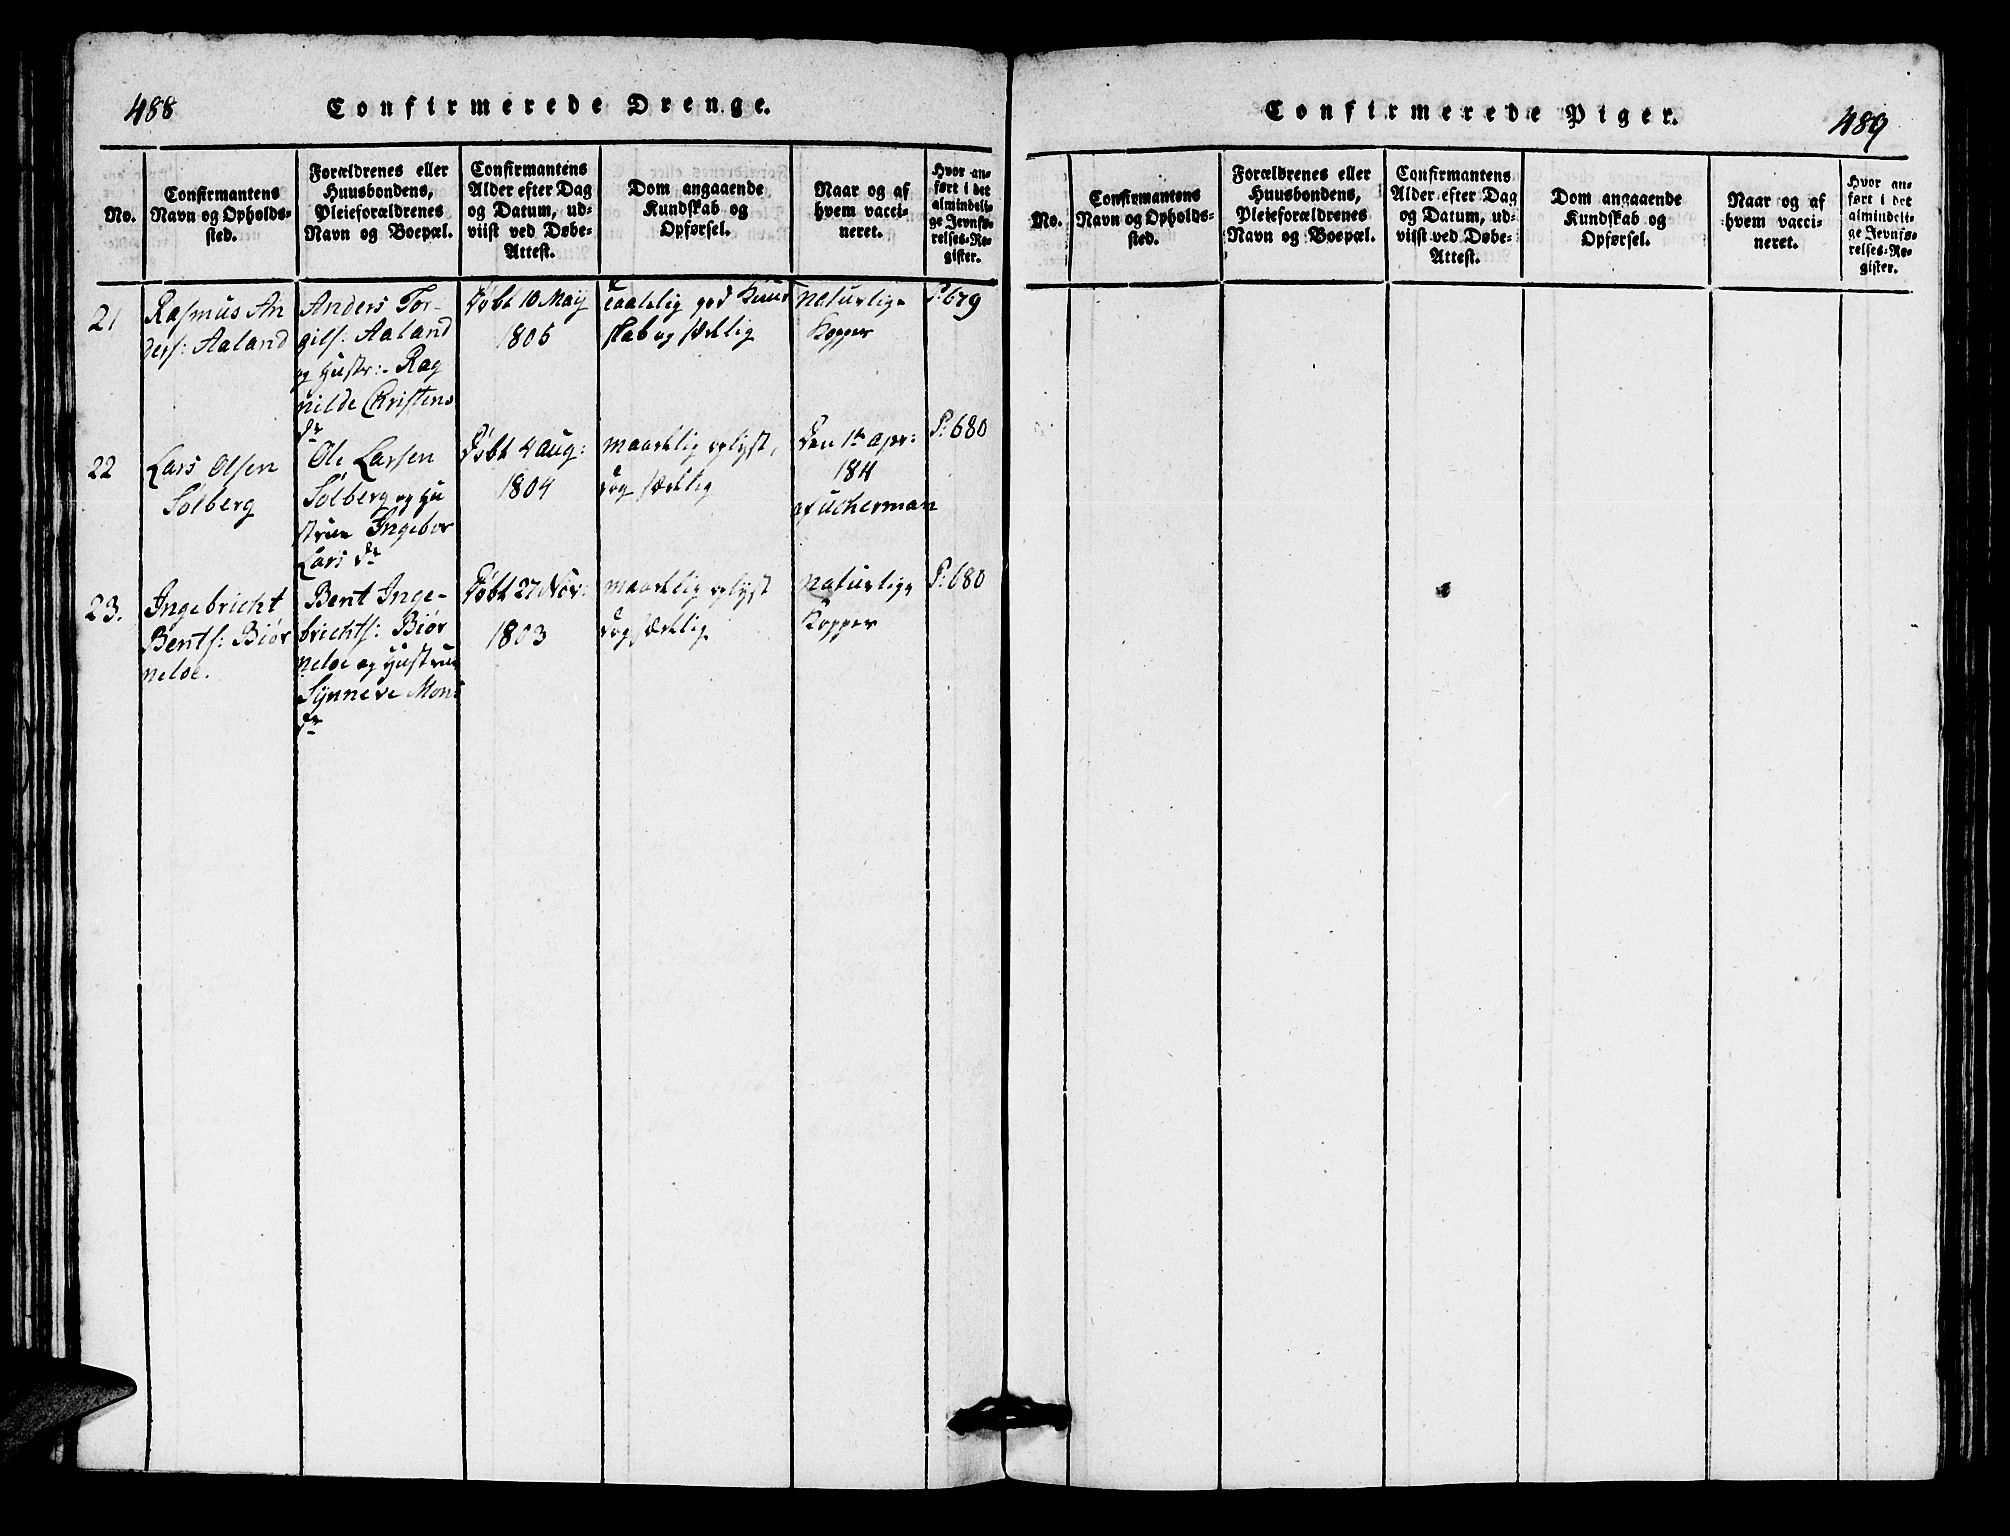 488
Confirmerede Drenge.
No.
Confirmantens
Navn og Opholds-
sted.
Forældrenes eller
Huusbondens,
Pleieforældrenes
Navn og Boepæl.
Confirmantens
Alder efter Dag
og Datum, ud-
viist ved Døbe-
Attest.
Dom angaaende
Kundskab og
Opførsel.
Naar og af
hvem vacci-
neret.
Hvor an-
ført i det
almindeli-
ge Jevnfø-
relses-Re-
gister.
21
Rasmus An
ders: Aaland
Anders Tor-
gils: Aaland
og Hustr: Rag
nilde Christens
dr
Døbt 10 Maij
1805
god Kund
skab og sædelig
naturlige
Kopper
P: 679
22
Lars Olsen
Solberg
Ole Larsen
Solberg og Hu
strue Ingebor
Lars dr
Døbt 4 Aug:
1804
maadelig oplyst,
dog sædelig
Den 1te Apr:
1811
af Uckerman
P: 680
23.
Ingebricht
Bents: Biør
neloe.
Bent Inge-
brichts: Biør
neloe og Hustrue
Synneve Mons
dr
Døbt 27 Nov:
1803
maadelig oplyst
dog sædelig
naturlige
Kopper
P: 680
Confirmerede Piger.
489
No.
Confirmantens
Navn og Opholds-
sted.
Forældrenes eller
Huusbondens,
Pleieforældrenes
Navn og Boepæl.
Confirmantens
Alder efter Dag
og Datum, ud-
viist ved Døbe-
Attest.
Dom angaaende
Kundskab og
Opførsel.
Naar og af
hvem vacci-
neret.
Hvor an-
ført i det
almindeli-
ge Jevnfø-
relses-Re-
gister.